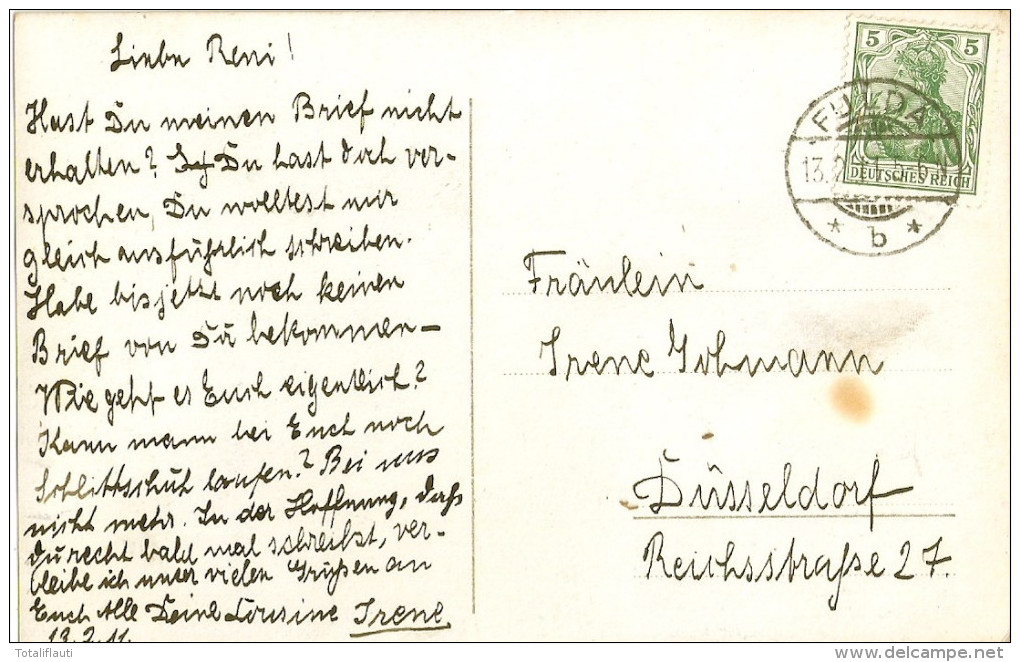 Liebe Reni!
Hast Du meinen Brief nicht
erhalten? Du hast doch ver-
sprochen, Du wolltest mir
gleich ausführlich schreiben.
Habe bis jetzt noch keinen
Brief von Dir bekommen –
Wie geht es Euch eigentlich?
Kann mann bei Euch noch
Schlittschuh laufen? Bei uns
nicht mehr. In der Hoffnung, daß
du recht bald mal schreibst, ver-
bleibe ich unter vielen Grüßen an
Euch Alle Deine Cousine Irene
13.2.11.
5 5
DEUTSCHES REICH
FULDA
13.2.11. 5-6 N
* b *
Fräulein
Irene Gohmann
Düsseldorf
Reichsstraße 27.
Totaliflauti
www.delcampe.net